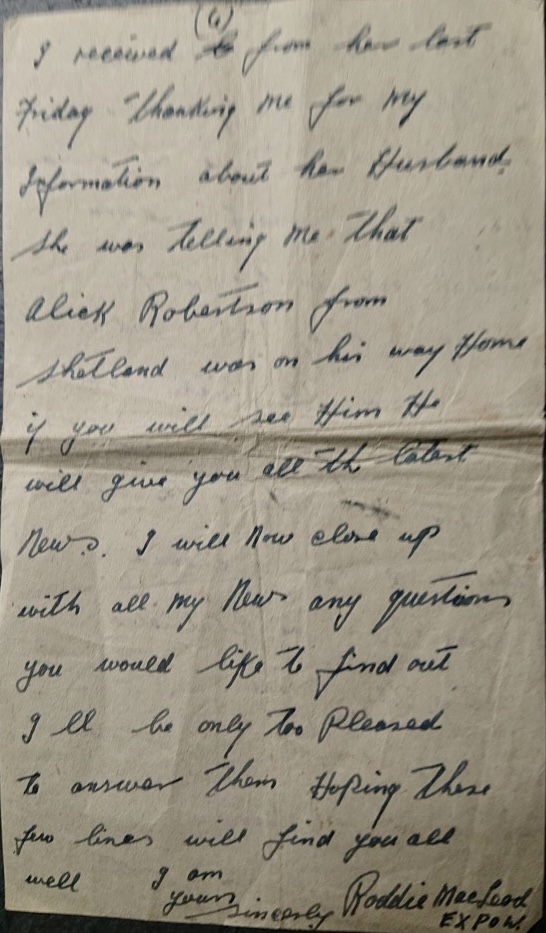 (6)
I received from her last
Friday thanking me for my
Information about her Husband.
She was telling me that
Alick Robertson from
Shetland was on his way Home
if you will see Him He
will give you all the latest
News. I will Now close up
with all my News any questions
you would like to find out
I ll be only too Pleased
to answer them Hoping these
few lines will find you all
well I am
yours
sincerly Roddie MacLeod
EX POW.